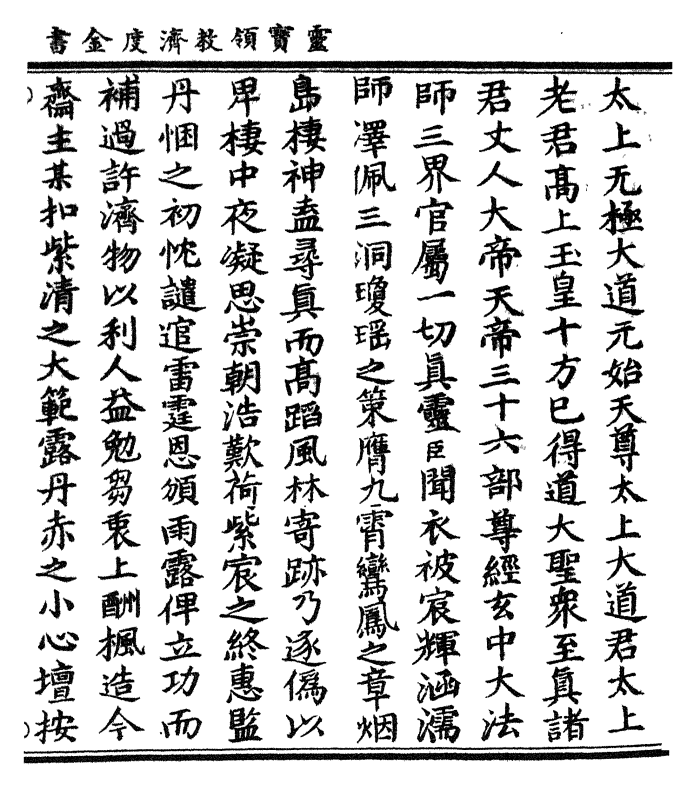 靈寶領教濟度金書
太上无極大道元始天尊太上大道君太上
老君高上玉皇十方已得道大聖衆至眞諸
君丈人大帝天帝三十六部尊經玄中大法
師三界官屬一切眞靈臣聞衣被宸輝涵濡
師澤佩三洞瓊瑶之策膺九霄鸞鳳之章烟
島棲神盍尋眞而高蹈風林寄跡乃逐僞以
卑棲中夜凝思崇朝浩歎荷紫宸之終惠監
丹悃之初忱譴逭雷霆恩頒雨露俾立功而
補過許濟物以利人益勉芻衷上酬楓造今
齋主某扣紫清之大範露丹赤之小心壇按